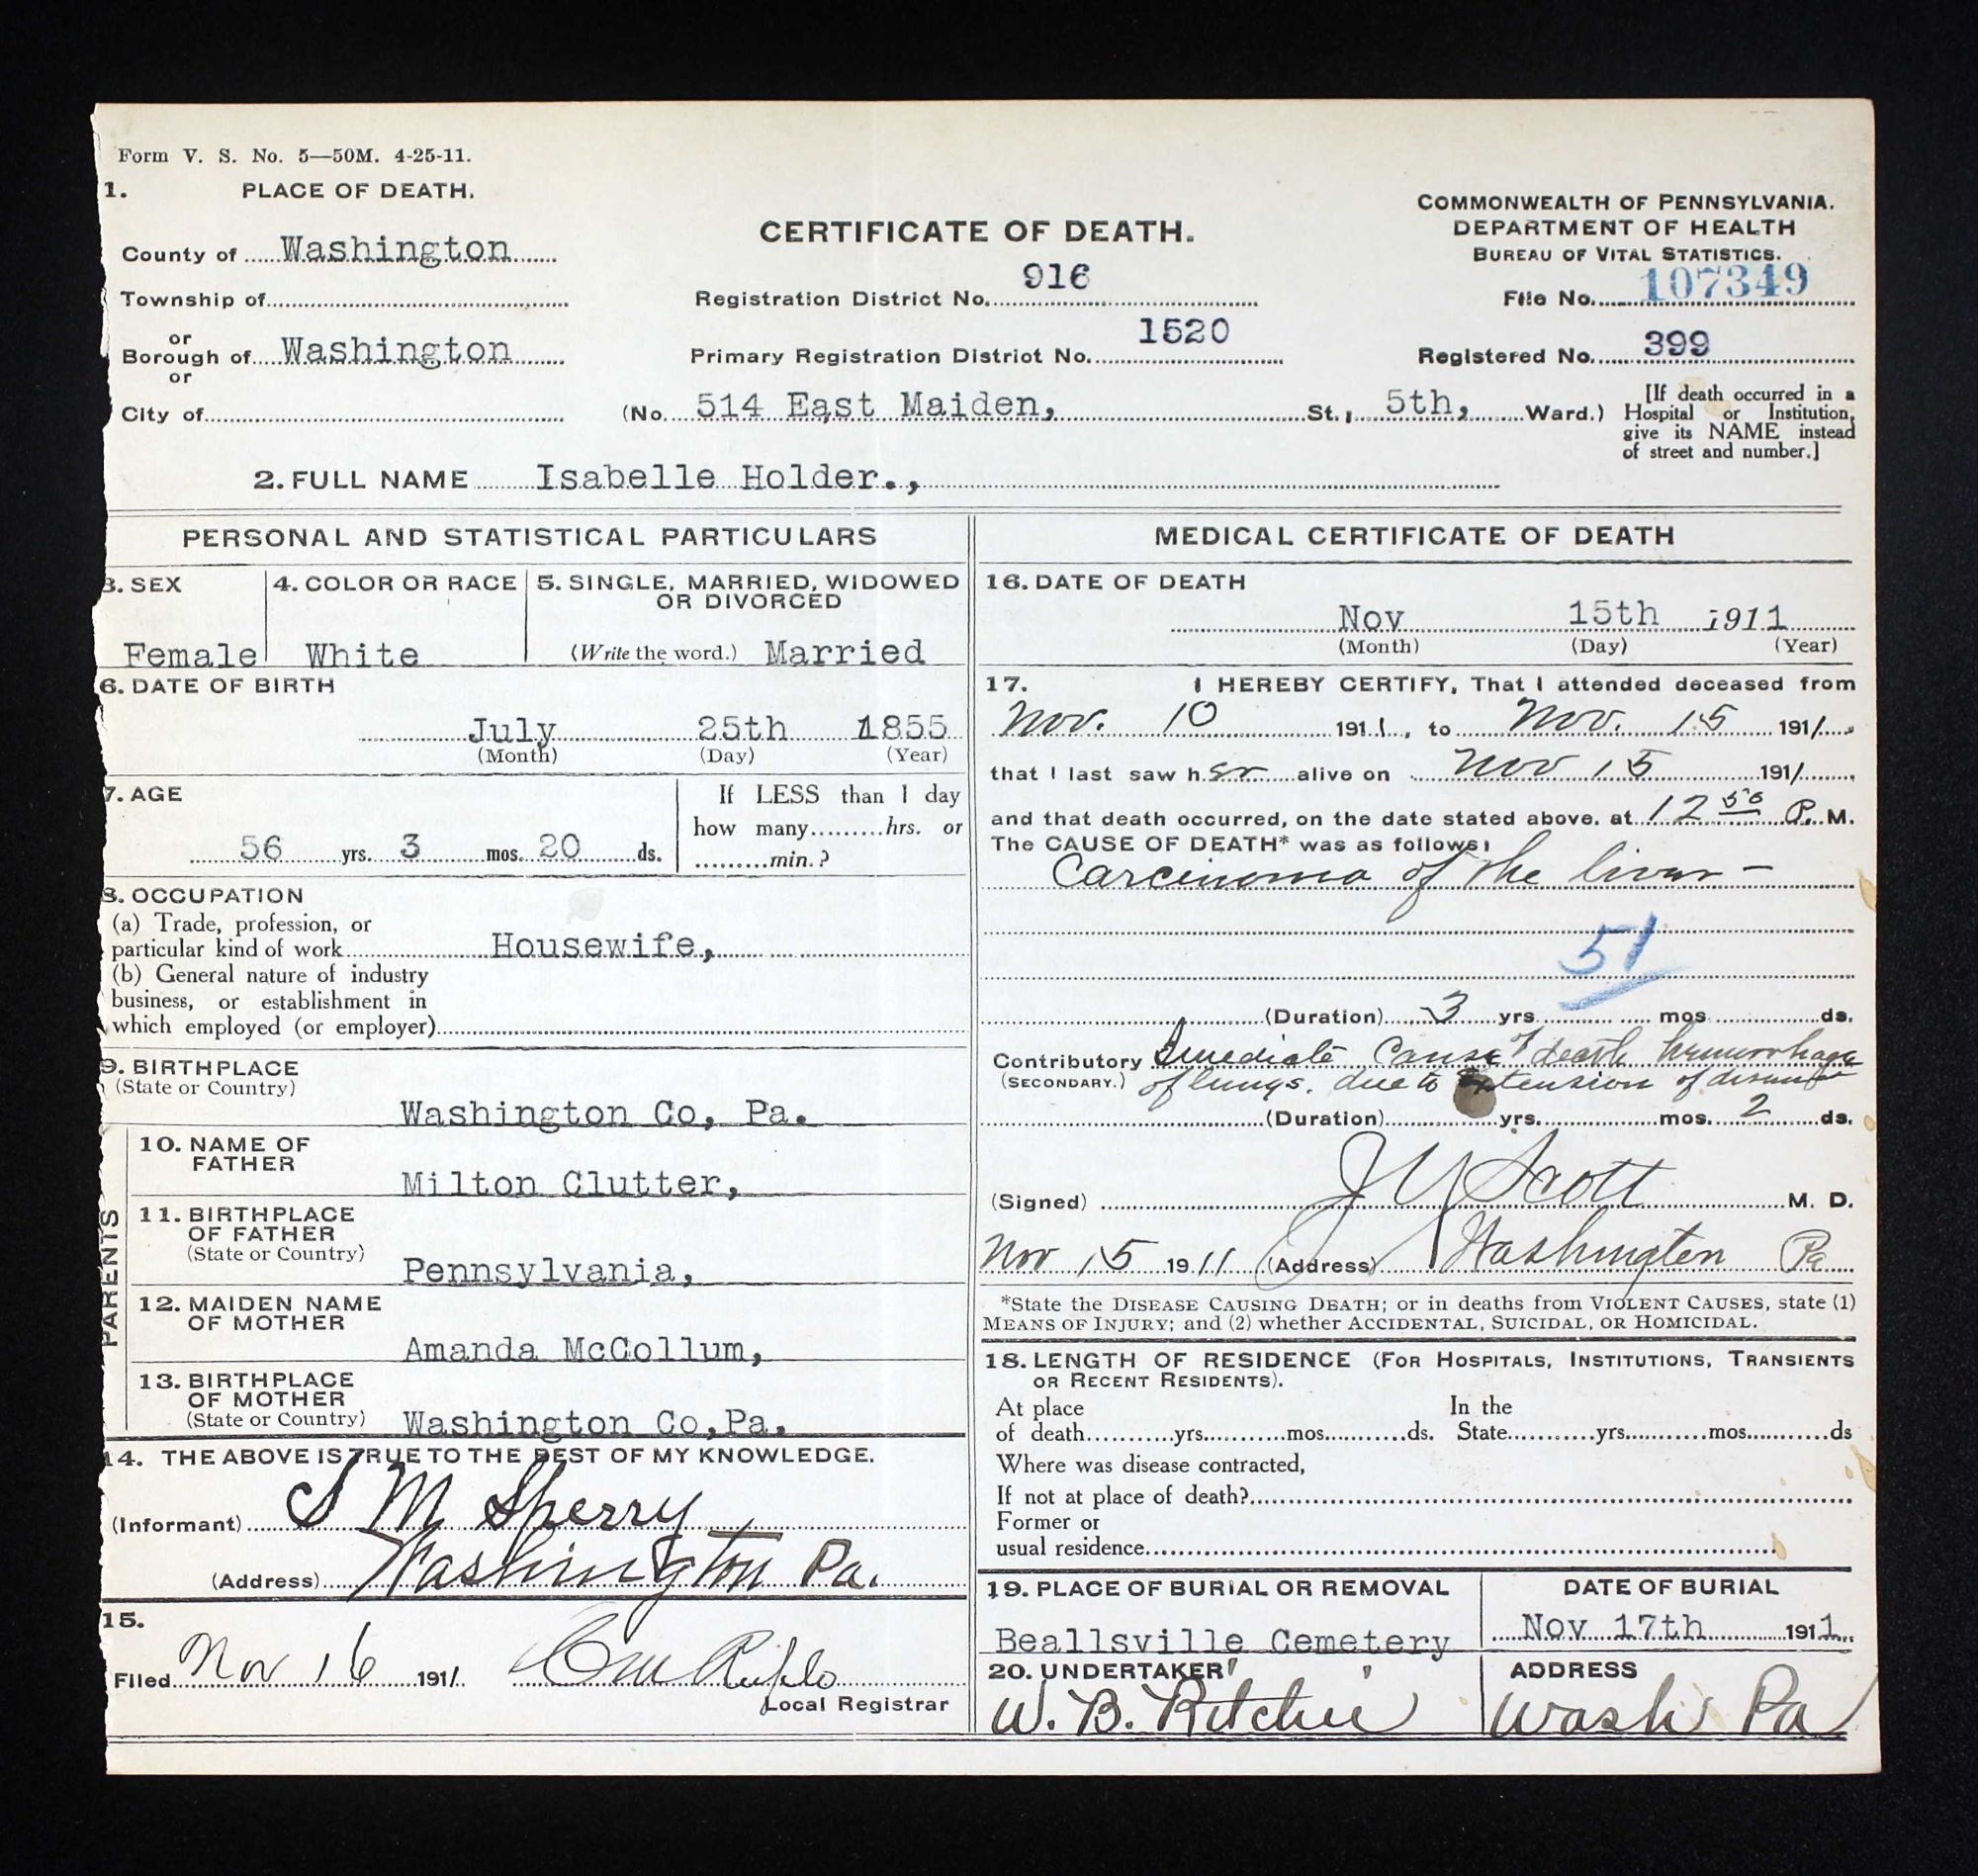 Form V. S. No. 5—50M. 4-25-11.
1. PLACE OF DEATH.
County of Washington
Township of
or
Borough of Washington
or
City of
CERTIFICATE OF DEATH.
Registration District No. 916
Primary Registration District No. 1520
(No. 514 East Maiden, St., 5th, Ward.)
COMMONWEALTH OF PENNSYLVANIA.
DEPARTMENT OF HEALTH
BUREAU OF VITAL STATISTICS.
File No. 107349
Registered No. 399
[If death occurred in a
Hospital or Institution,
give its NAME instead
of street and number.]
2. FULL NAME Isabelle Holder.,
PERSONAL AND STATISTICAL PARTICULARS
3. SEX
Female
4. COLOR OR RACE
White
5. SINGLE, MARRIED, WIDOWED
OR DIVORCED
(Write the word.) Married
6. DATE OF BIRTH
July 25th 1855
(Month) (Day) (Year)
7. AGE
56 yrs. 3 mos. 20 ds.
If LESS than 1 day
how many hrs. or
min.?
8. OCCUPATION
(a) Trade, profession, or
particular kind of work Housewife,
(b) General nature of industry
business, or establishment in
which employed (or employer)
9. BIRTHPLACE
(State or Country)
Washington Co, Pa.
PARENTS
10. NAME OF
FATHER
Milton Clutter,
11. BIRTHPLACE
OF FATHER
(State or Country)
Pennsylvania,
12. MAIDEN NAME
OF MOTHER
Amanda McCollum,
13. BIRTHPLACE
OF MOTHER
(State or Country) Washington Co,Pa.
14. THE ABOVE IS TRUE TO THE BEST OF MY KNOWLEDGE.
(Informant) S M Sperry
(Address) Washington Pa.
15.
Filed Nov 16 1911
Local Registrar
MEDICAL CERTIFICATE OF DEATH
16. DATE OF DEATH
Nov 15th 1911
(Month) (Day) (Year)
17. I HEREBY CERTIFY, That I attended deceased from
Nov. 10 1911, to Nov. 15 191/
that I last saw her alive on Nov 15 191/
and that death occurred, on the date stated above, at 12 50 P. M.
The CAUSE OF DEATH* was as follows:
Carcinoma of the liver —
51
(Duration) 3 yrs. mos ds.
Contributory Imediate Cause of death hemorrhage
(SECONDARY.) of lungs. due to extension of disease
(Duration) yrs. mos. 2 ds.
(Signed) J Y Scott M. D.
Nov 15 1911 (Address) Washington Pa
*State the DISEASE CAUSING DEATH; or in deaths from VIOLENT CAUSES, state (1)
MEANS OF INJURY; and (2) whether ACCIDENTAL, SUICIDAL, OR HOMICIDAL.
18. LENGTH OF RESIDENCE (FOR HOSPITALS, INSTITUTIONS, TRANSIENTS
OR RECENT RESIDENTS).
At place In the
of death yrs. mos. ds. State yrs. mos. ds
Where was disease contracted,
If not at place of death?
Former or
usual residence
19. PLACE OF BURIAL OR REMOVAL
Beallsville Cemetery
DATE OF BURIAL
Nov 17th 1911
20. UNDERTAKER
W. B. Ritchie
ADDRESS
Wash Pa